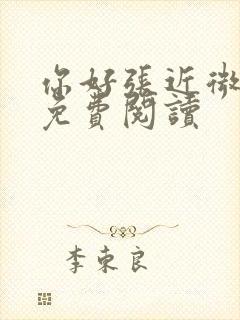 你好張近微
免費閱讀
李東良